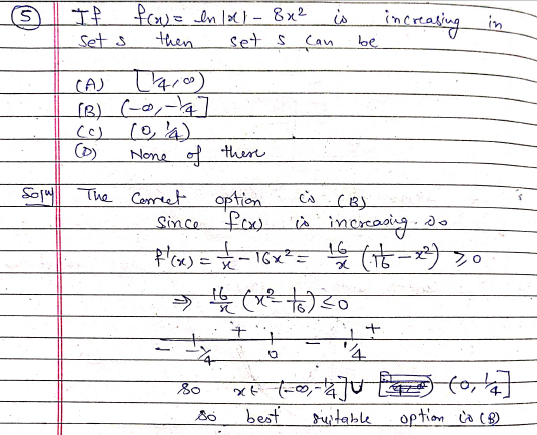 (5) If f(x) = ln|x| - 8x² is increasing in
set s then set s can be
(A) [1/4, ∞)
(B) (-∞, -1/4]
(C) (0, 1/4)
(D) None of these
Solⁿ The correct option is (B)
Since f(x) is increasing. So
f'(x) = 1/x - 16x² = 16/x (1/16 - x²) ≥ 0
⇒ 16/x (x² - 1/16) ≤ 0
- -1/4 + 0 - 1/4 +
so x ∈ (-∞, -1/4] ∪ (0, 1/4]
so best suitable option is (B)